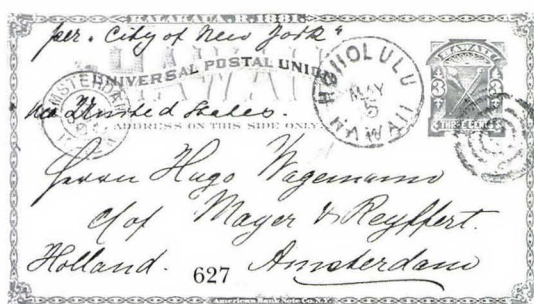 KALAKAUA. R. 1881.
per "City of New York"
HAWAII
UNIVERSAL POSTAL UNION
HONOLULU
MAY
5
HAWAII
HAWAII
3 3
THREE CENTS
AMSTERDAM
via United States.
ADDRESS ON THIS SIDE ONLY.
Herrn Hugo Wagemann
c/of Mayer & Reyffert.
Holland. 627 Amsterdam
American Bank Note Co. N.Y.